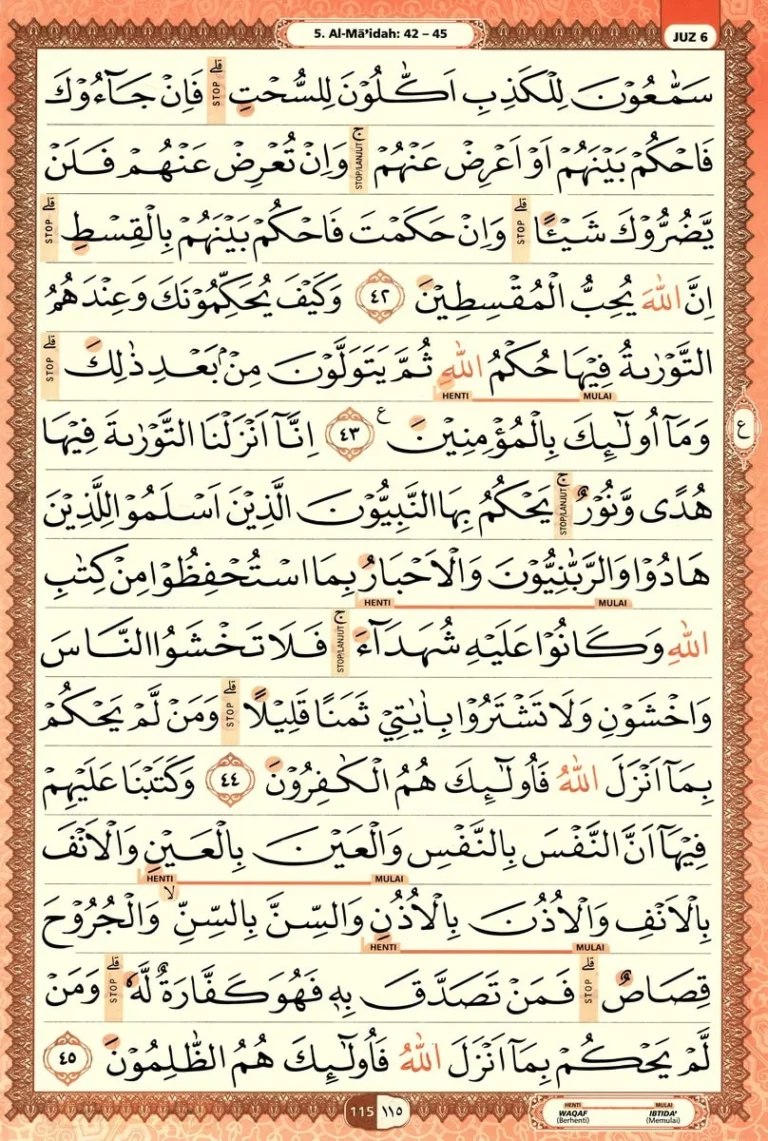 5. Al-Mā’idah: 42 – 45
JUZ 6
سَمّٰعُوْنَ لِلْكَذِبِ اَكّٰلُوْنَ لِلسُّحْتِۗ فَاِنْ جَاۤءُوْكَ
قلى
STOP
فَاحْكُمْ بَيْنَهُمْ اَوْ اَعْرِضْ عَنْهُمْ ۚوَاِنْ تُعْرِضْ عَنْهُمْ فَلَنْ
STOP/LANJUT
يَّضُرُّوْكَ شَيْـًٔا ۗوَاِنْ حَكَمْتَ فَاحْكُمْ بَيْنَهُمْ بِالْقِسْطِۗ
STOP
STOP
اِنَّ اللّٰهَ يُحِبُّ الْمُقْسِطِيْنَ ٤٢ وَكَيْفَ يُحَكِّمُوْنَكَ وَعِنْدَهُمُ
التَّوْرٰىةُ فِيْهَا حُكْمُ اللّٰهِ ثُمَّ يَتَوَلَّوْنَ مِنْۢ بَعْدِ ذٰلِكَ ۗ
STOP
HENTI MULAI
وَمَآ اُولٰۤىِٕكَ بِالْمُؤْمِنِيْنَ ٤٣ ع اِنَّآ اَنْزَلْنَا التَّوْرٰىةَ فِيْهَا
ع
هُدًى وَّنُوْرٌ ۚيَحْكُمُ بِهَا النَّبِيُّوْنَ الَّذِيْنَ اَسْلَمُوْا لِلَّذِيْنَ
STOP/LANJUT
هَادُوْا وَالرَّبّٰنِيُّوْنَ وَالْاَحْبَارُ بِمَا اسْتُحْفِظُوْا مِنْ كِتٰبِ
HENTI MULAI
اللّٰهِ وَكَانُوْا عَلَيْهِ شُهَدَاۤءَۚ فَلَا تَخْشَوُا النَّاسَ
STOP/LANJUT
وَاخْشَوْنِ وَلَا تَشْتَرُوْا بِاٰيٰتِيْ ثَمَنًا قَلِيْلًا ۗوَمَنْ لَّمْ يَحْكُمْ
STOP
بِمَآ اَنْزَلَ اللّٰهُ فَاُولٰۤىِٕكَ هُمُ الْكٰفِرُوْنَ ٤٤ وَكَتَبْنَا عَلَيْهِمْ
فِيْهَآ اَنَّ النَّفْسَ بِالنَّفْسِ وَالْعَيْنَ بِالْعَيْنِ وَالْاَنْفَ
HENTI MULAI
بِالْاَنْفِ وَالْاُذُنَ بِالْاُذُنِ وَالسِّنَّ بِالسِّنِّۙ وَالْجُرُوْحَ
HENTI MULAI
قِصَاصٌۗ فَمَنْ تَصَدَّقَ بِهٖ فَهُوَ كَفَّارَةٌ لَّهٗ ۗوَمَنْ
STOP
STOP
لَّمْ يَحْكُمْ بِمَآ اَنْزَلَ اللّٰهُ فَاُولٰۤىِٕكَ هُمُ الظّٰلِمُوْنَ ٤٥
115 ١١٥
HENTI MULAI
WAQAF IBTIDA'
(Berhenti) (Memulai)